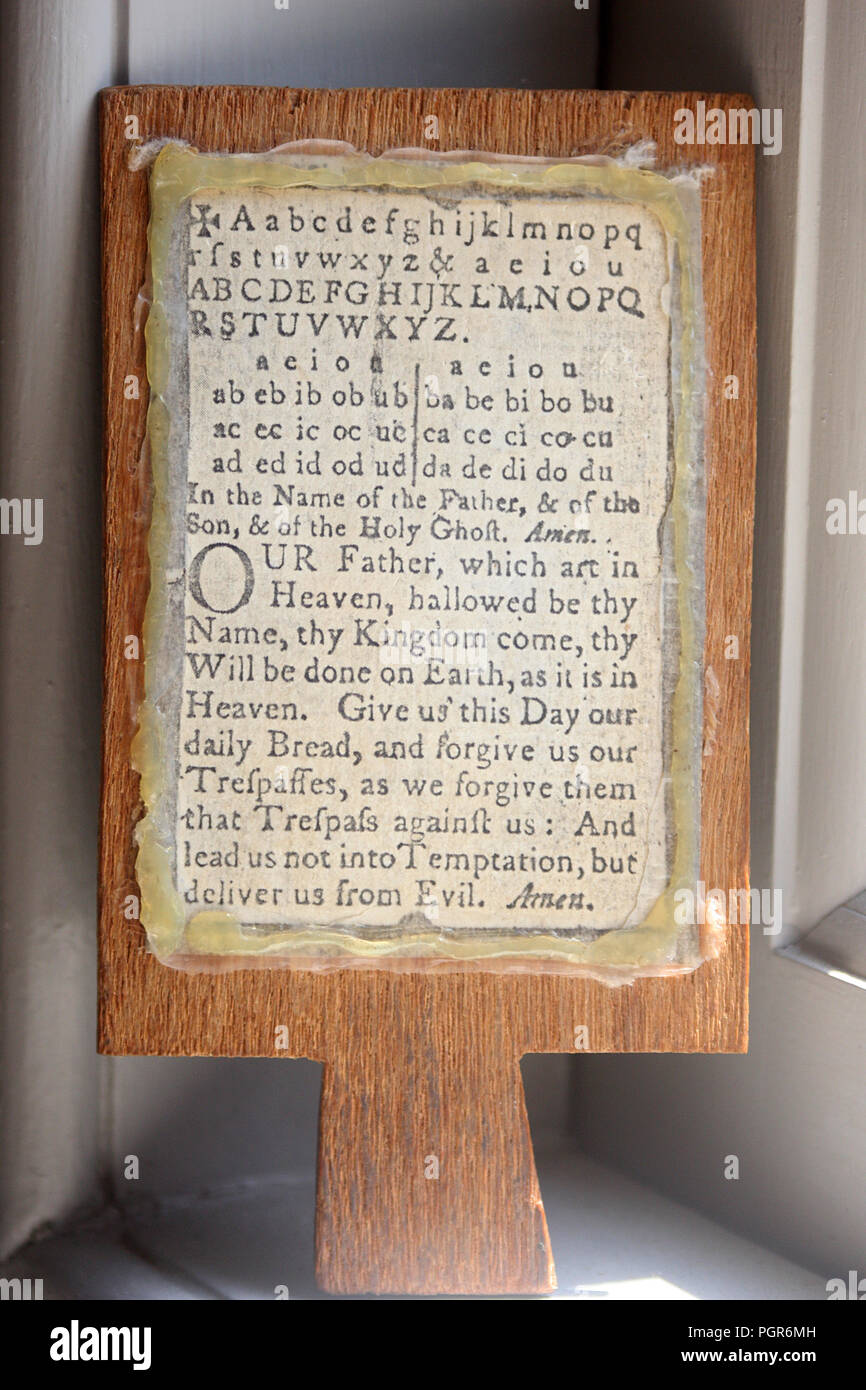 ✠ A a b c d e f g h i j k l m n o p q
r ſ s t u v w x y z & a e i o u
A B C D E F G H I J K L M N O P Q
R S T U V W X Y Z .
a e i o u a e i o u
ab eb ib ob ub ba be bi bo bu
ac ec ic oc uc ca ce ci co cu
ad ed id od ud da de di do du
In the Name of the Father, & of the
Son, & of the Holy Ghoſt. Amen.
OUR Father, which art in
Heaven, hallowed be thy
Name, thy Kingdom come, thy
Will be done on Earth, as it is in
Heaven. Give us this Day our
daily Bread, and forgive us our
Treſpaſſes, as we forgive them
that Treſpaſs againſt us : And
lead us not into Temptation, but
deliver us from Evil. Amen.
alamy
alamy
alamy
alamy
alamy
Image ID: PGR6MH
www.alamy.com